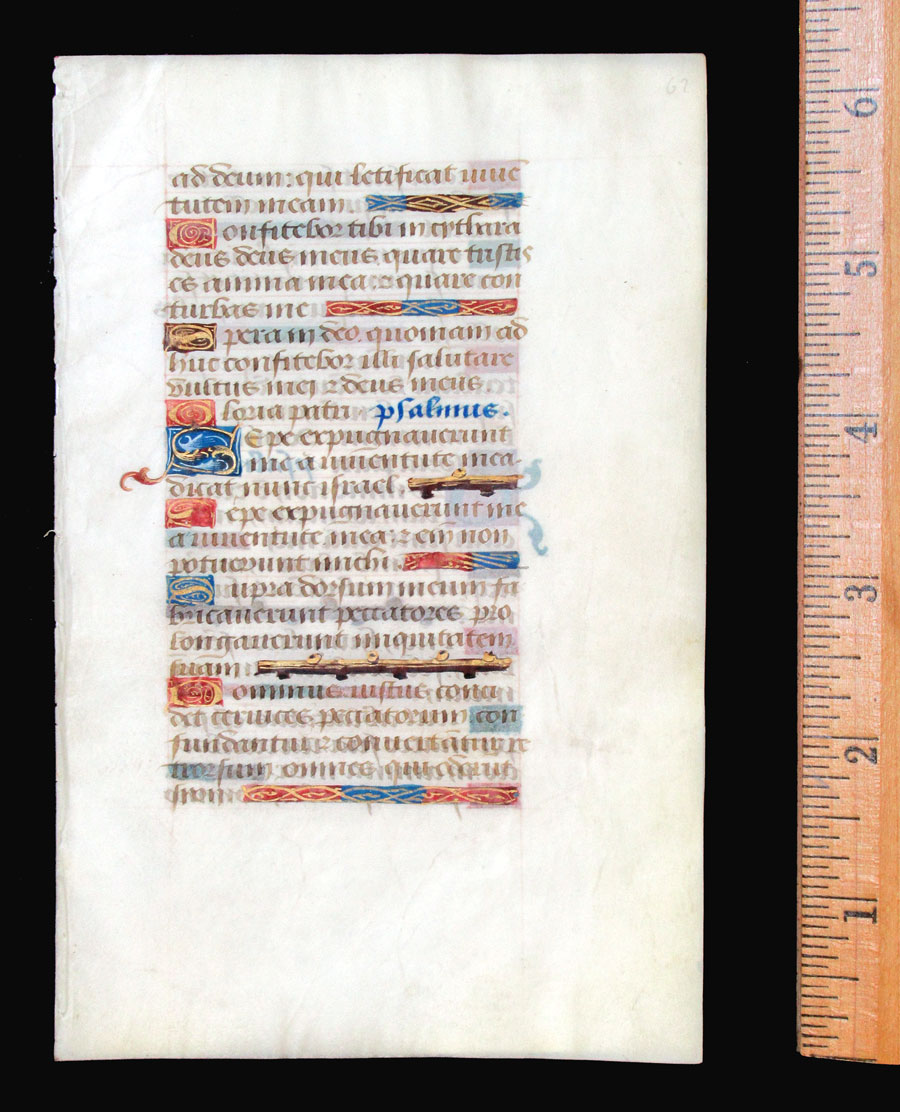 62
ad deum: qui letificat iuue
tutem meam
Confitebor tibi in cythara
deus deus meus quare tristis
es anima mea: ⁊ quare con
turbas me
Spera in deo quoniam ad
huc confitebor illi salutare
vultus mei ⁊ deus meus
Gloria patri psalmus.
Sepe expugnauerunt
me a iuuentute mea
dicat nunc israel.
Sepe expugnauerunt me
a iuuentute mea: ⁊ em̄ non
potuerunt michi
Supra dorsum meum fa
bricauerunt peccatores pro
longauerunt iniquitatem
suam
Dominus iustus conci
det ceruices peccatorum con
fundantur ⁊ conuertātur re
trorsum omnes qui oderūt
syon
6
5
4
3
2
1